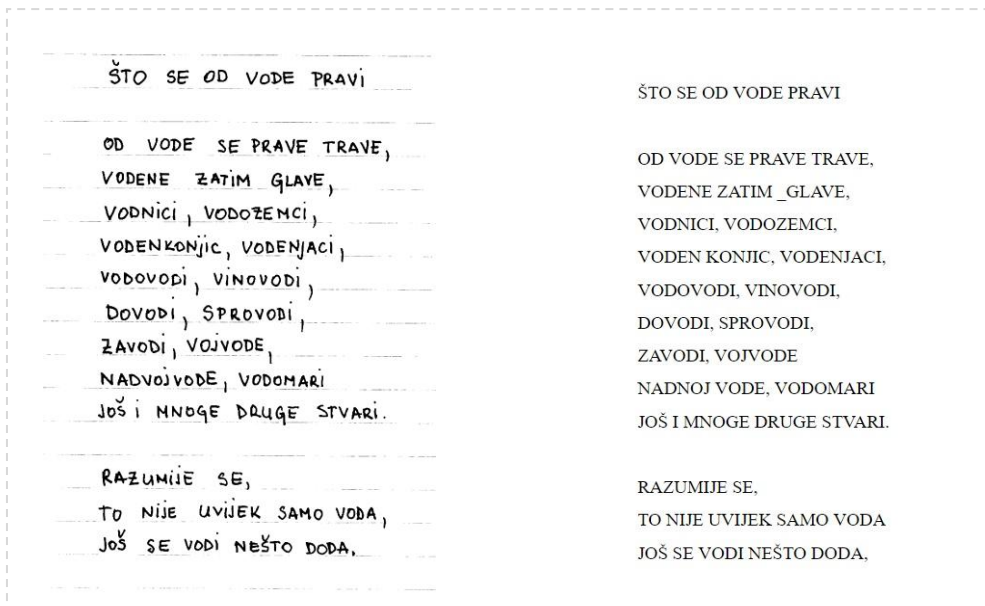 ŠTO SE OD VODE PRAVI
OD VODE SE PRAVE TRAVE,
VODENE ZATIM GLAVE,
VODNICI, VODOZEMCI,
VODENKONJIC, VODENJACI,
VODOVODI, VINOVODI,
DOVODI, SPROVODI,
ZAVODI, VOJVODE,
NADVOJVODE, VODOMARI
JOŠ I MNOGE DRUGE STVARI.
RAZUMIJE SE,
TO NIJE UVIJEK SAMO VODA,
JOŠ SE VODI NEŠTO DODA.
ŠTO SE OD VODE PRAVI
OD VODE SE PRAVE TRAVE,
VODENE ZATIM _GLAVE,
VODNICI, VODOZEMCI,
VODEN KONJIC, VODENJACI,
VODOVODI, VINOVODI,
DOVODI, SPROVODI,
ZAVODI, VOJVODE
NADNOJ VODE, VODOMARI
JOŠ I MNOGE DRUGE STVARI.
RAZUMIJE SE,
TO NIJE UVIJEK SAMO VODA
JOŠ SE VODI NEŠTO DODA,